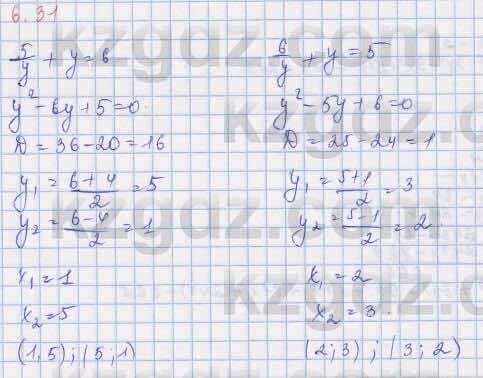 6.31
5/y + y = 6
y² - 6y + 5 = 0
D = 36 - 20 = 16
y₁ = (6 + 4)/2 = 5
y₂ = (6 - 4)/2 = 1
x₁ = 1
x₂ = 5
(1,5); (5;1)
6/y + y = 5
y² - 5y + 6 = 0
D = 25 - 24 = 1
y₁ = (5 + 1)/2 = 3
y₂ = (5 - 1)/2 = 2
x₁ = 2
x₂ = 3
(2;3); (3;2)
kzgdz.com